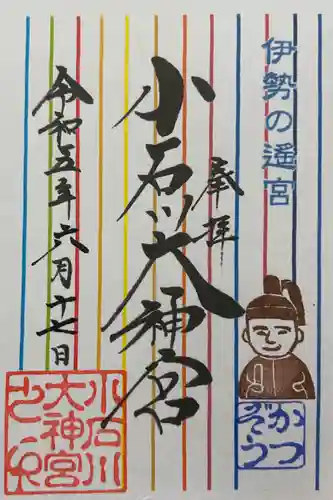 伊勢の遥宮
奉拝
小石川大神宮
令和五年六月十七日
小石川
大神宮
かつ
ぞう